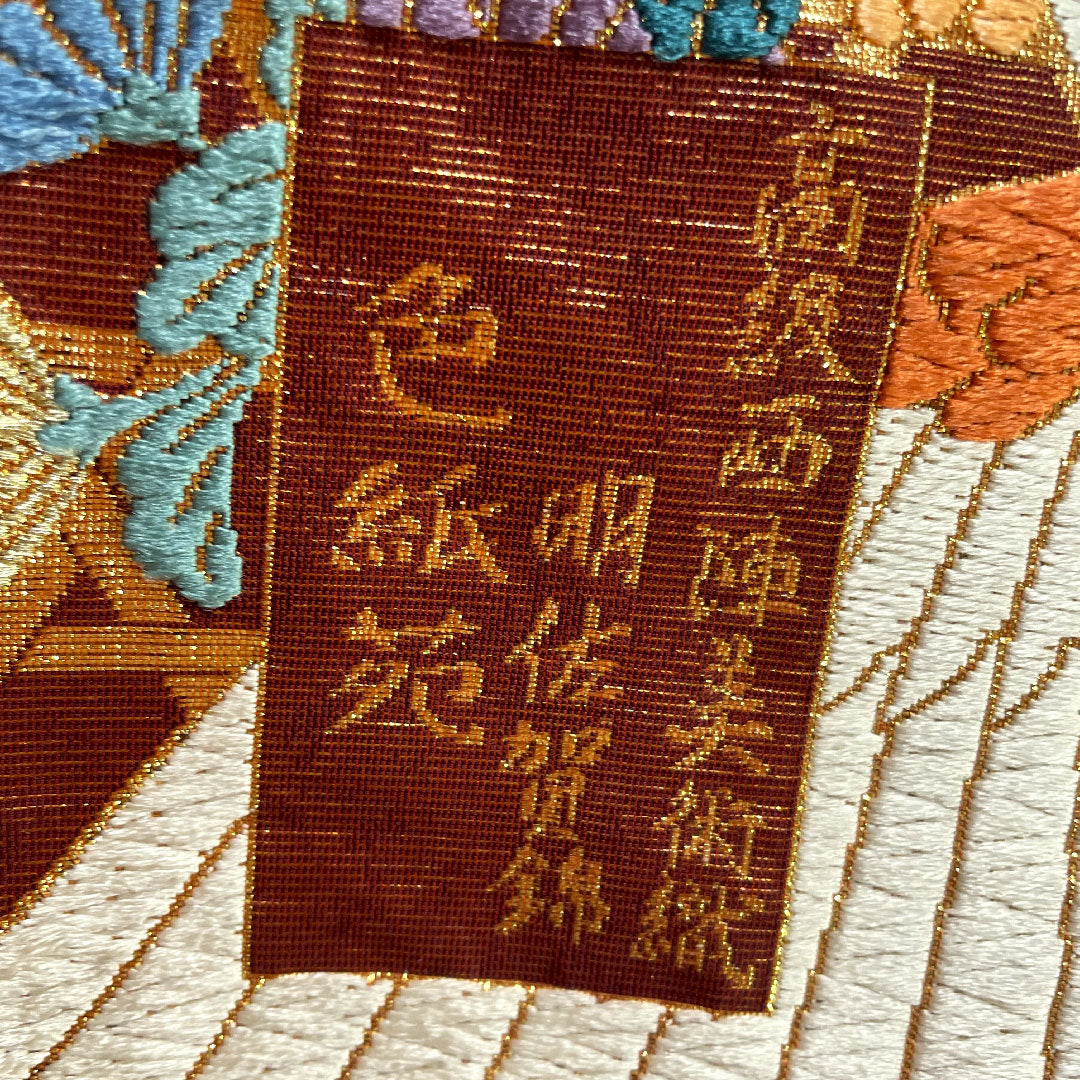 高級西陣美術織
明佐賀錦
色紙苑